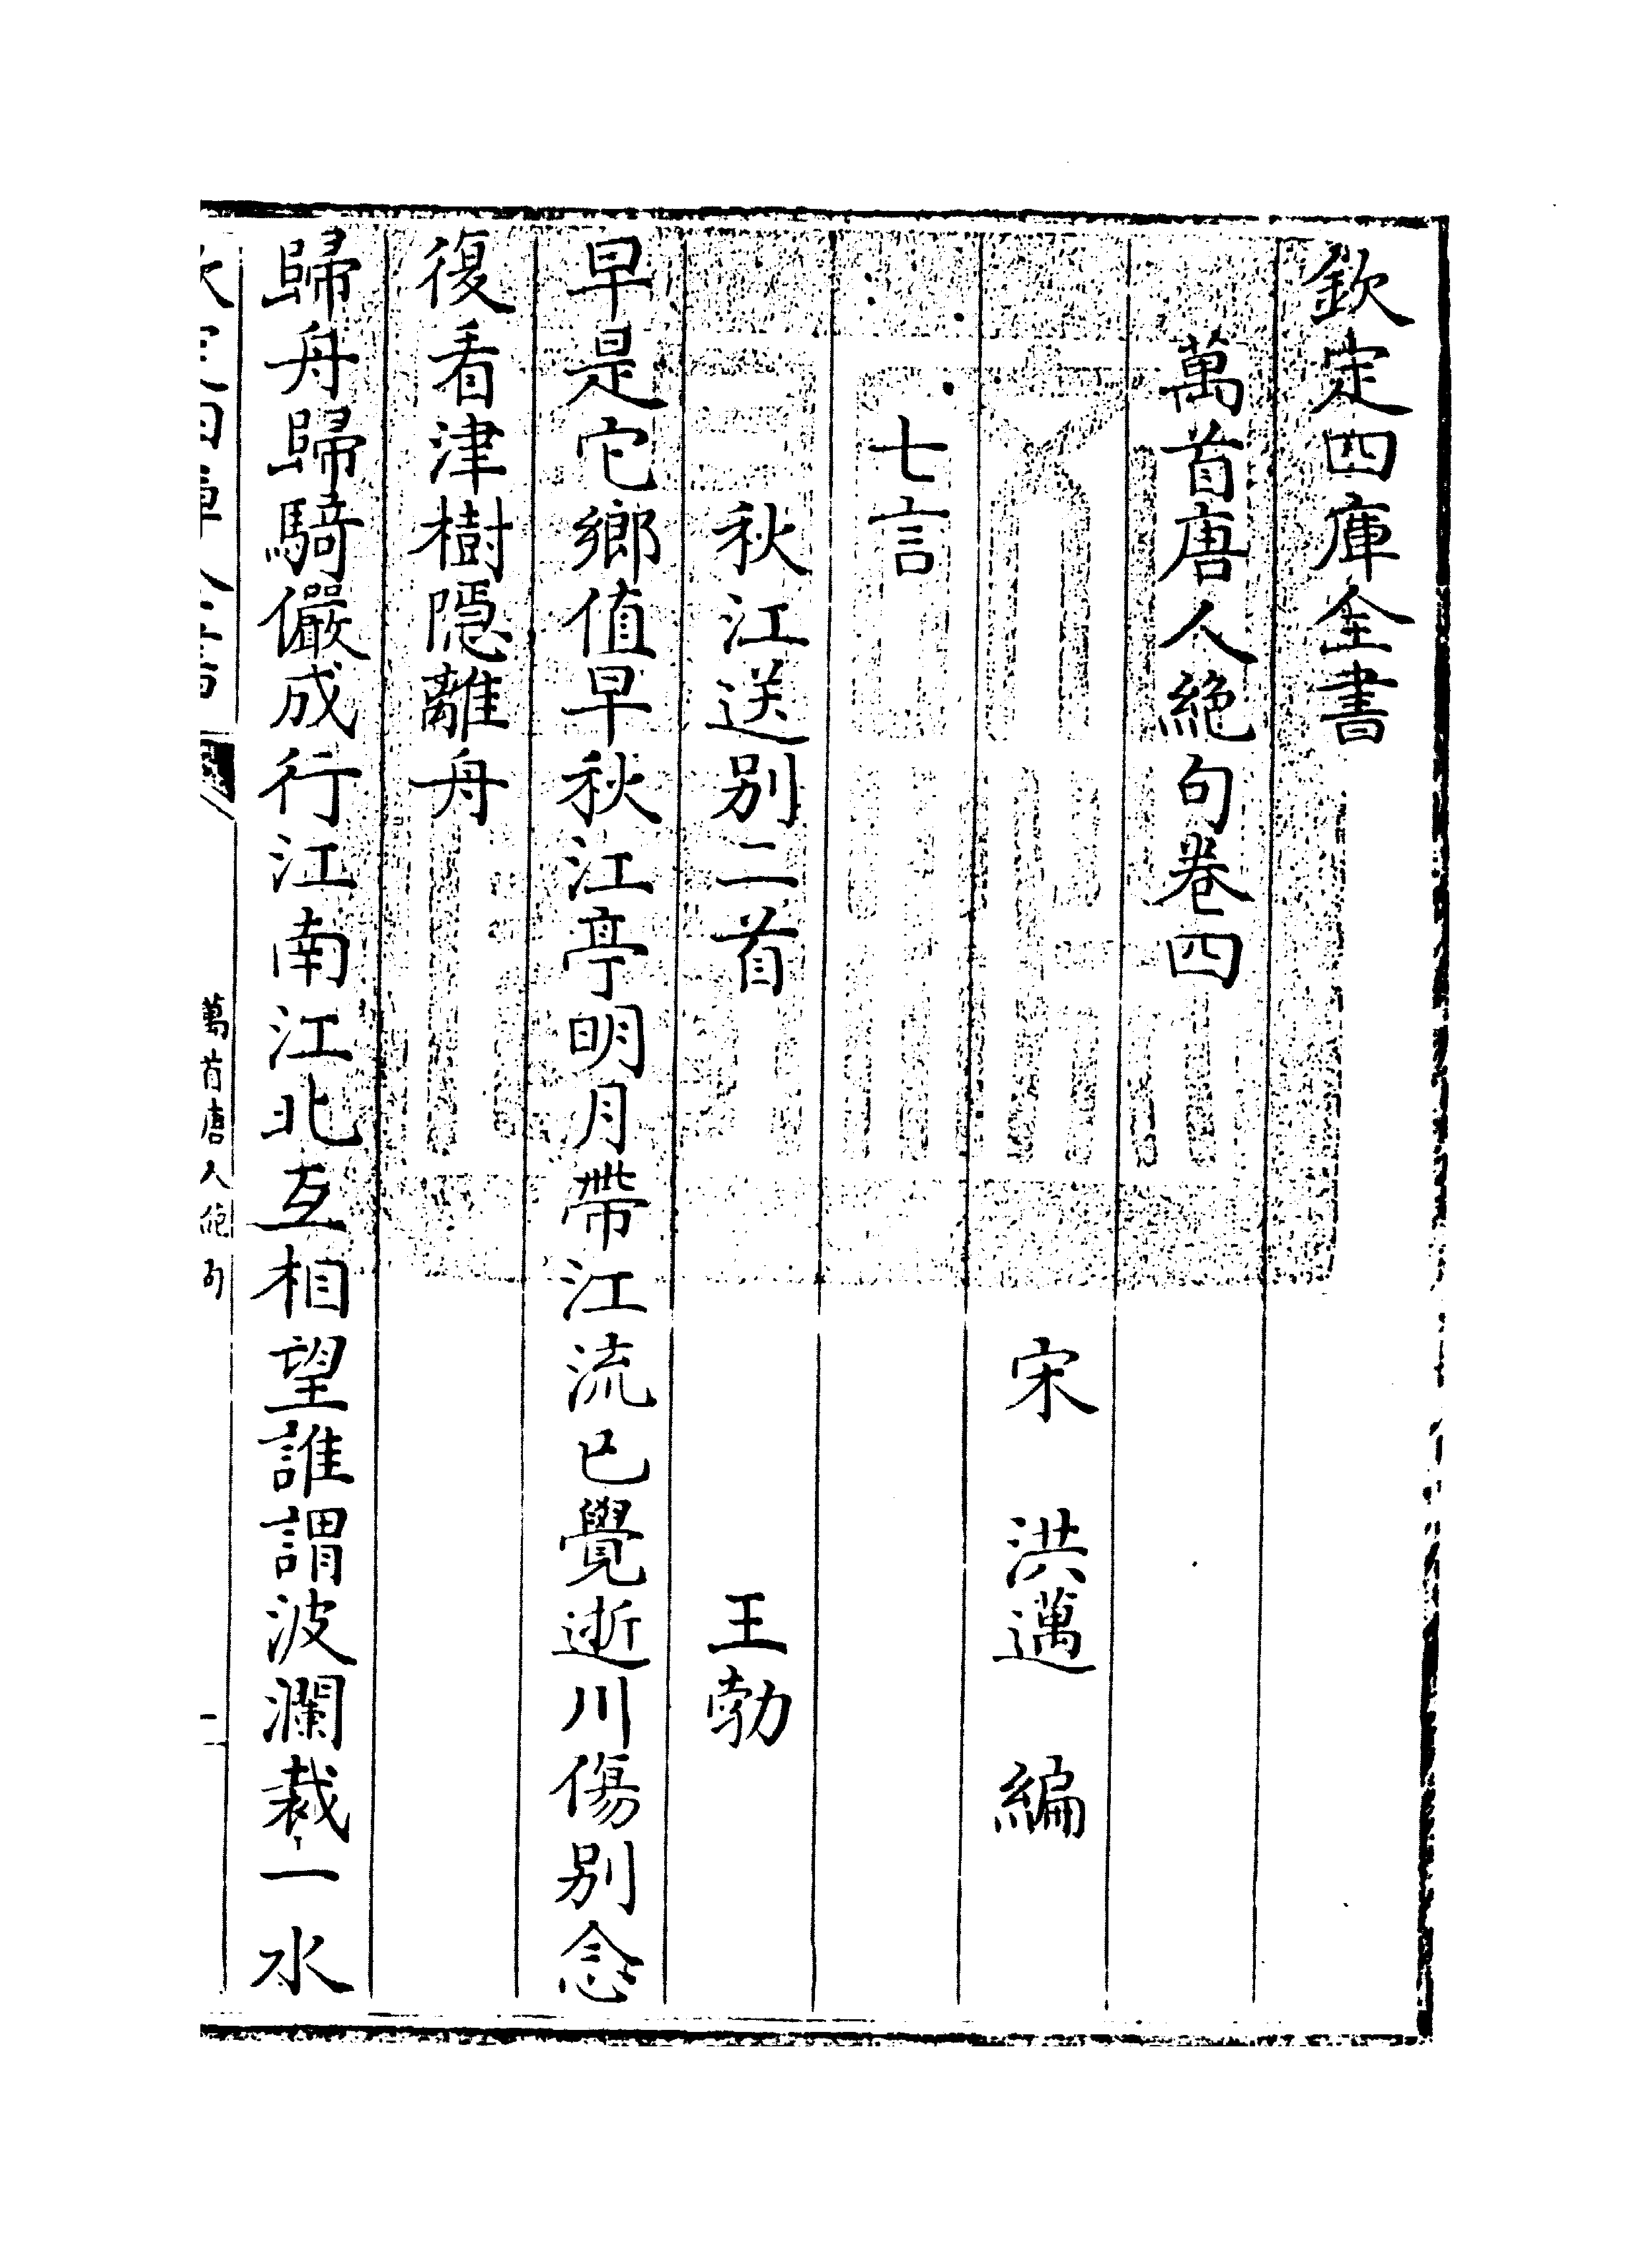 欽定四庫全書
萬首唐人絶句卷四
宋　洪邁　編
七言
秋江送别二首　王勃
早是它鄉值早秋江亭明月帶江流已覺逝川傷别念
復看津樹隠離舟
歸舟歸騎儼成行江南江北互相望誰謂波瀾裁一水
萬首唐人絶句